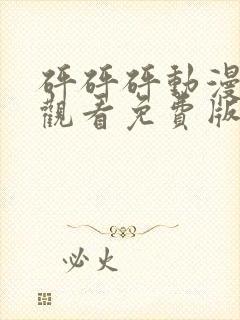 砰砰砰動漫
觀看免費版
必火